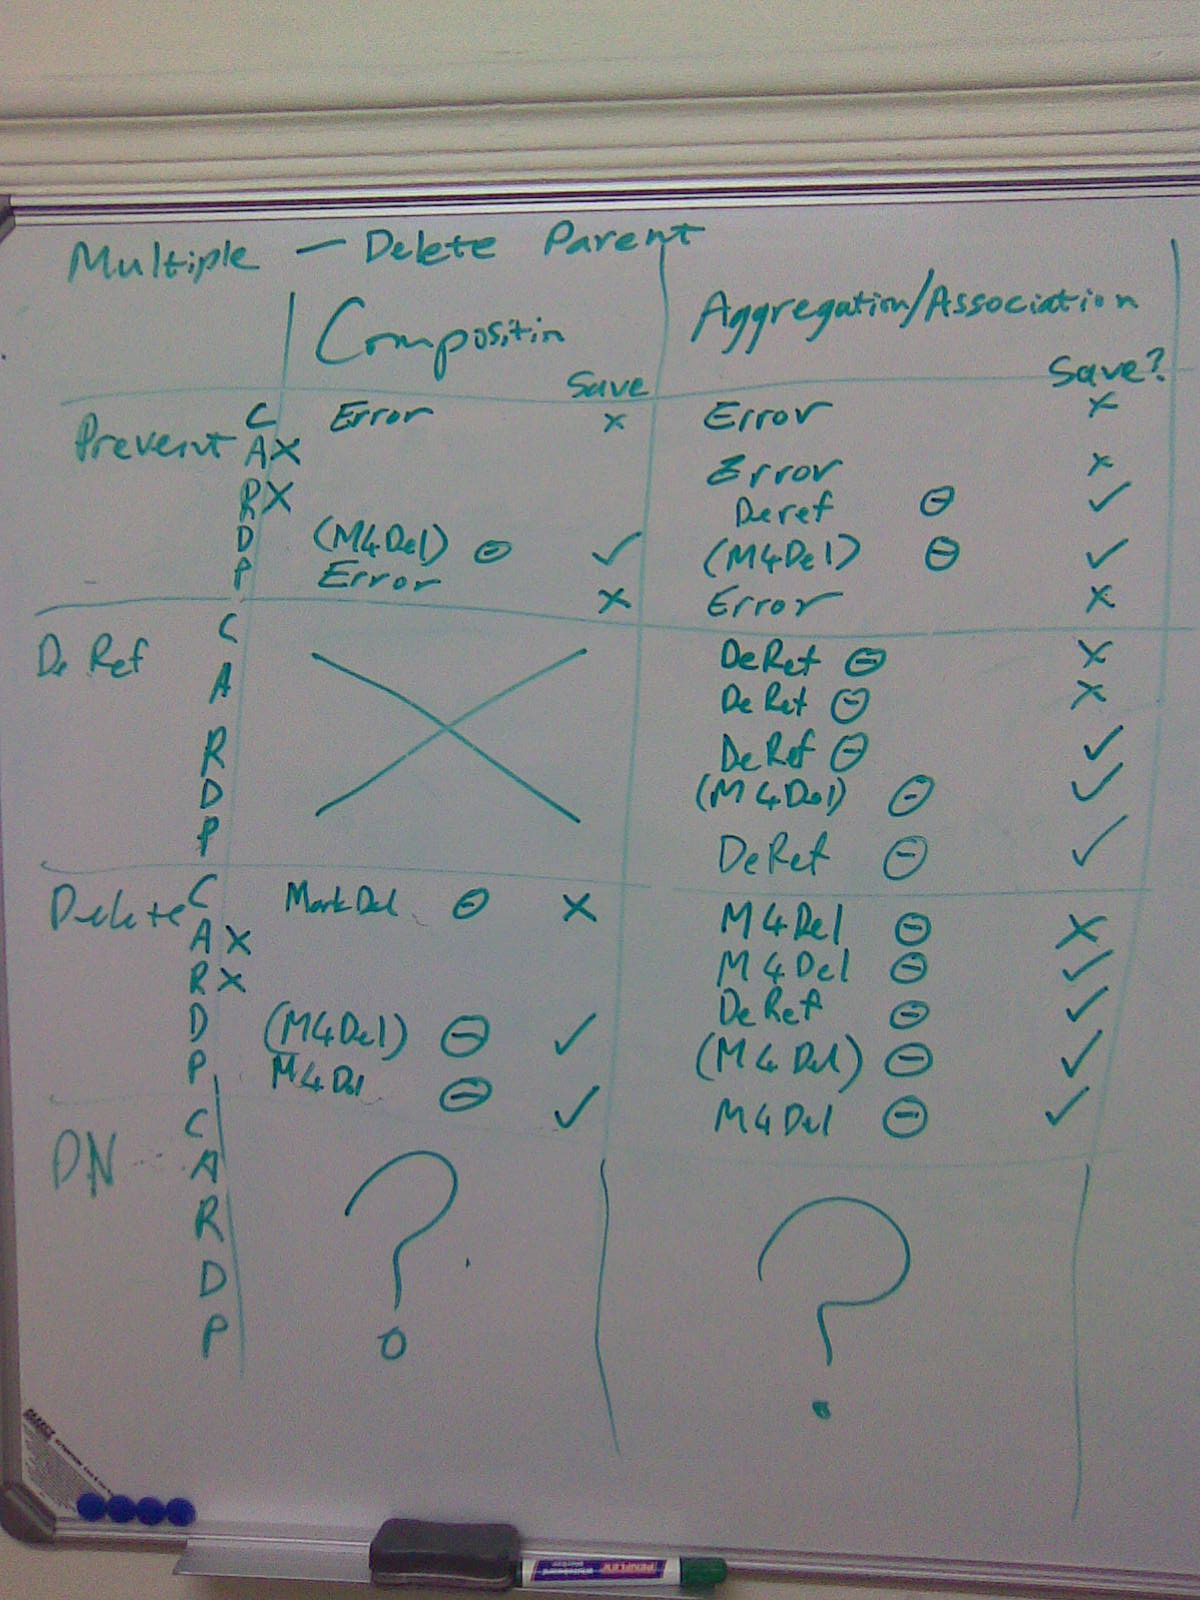 Multiple — Delete Parent
Compositin Aggregation/Association
Save Save?
Prevent C Error x Error x
A X Error x
R X Deref ⊖ ✓
D (M4Del) ⊖ ✓ (M4Del) ⊖ ✓
P Error x Error x
De Ref C DeRef ⊖ x
A DeRef ⊖ x
R DeRef ⊖ ✓
D (M4Del) ⊖ ✓
P DeRef ⊖ ✓
Delete C MarkDel ⊖ x M4Del ⊖ x
A X M4Del ⊖ ✓
R X DeRef ⊖ ✓
D (M4Del) ⊖ ✓ (M4Del) ⊖ ✓
P M4Del ⊖ ✓ M4Del ⊖ ✓
DN C ? ?
A
R
D
P